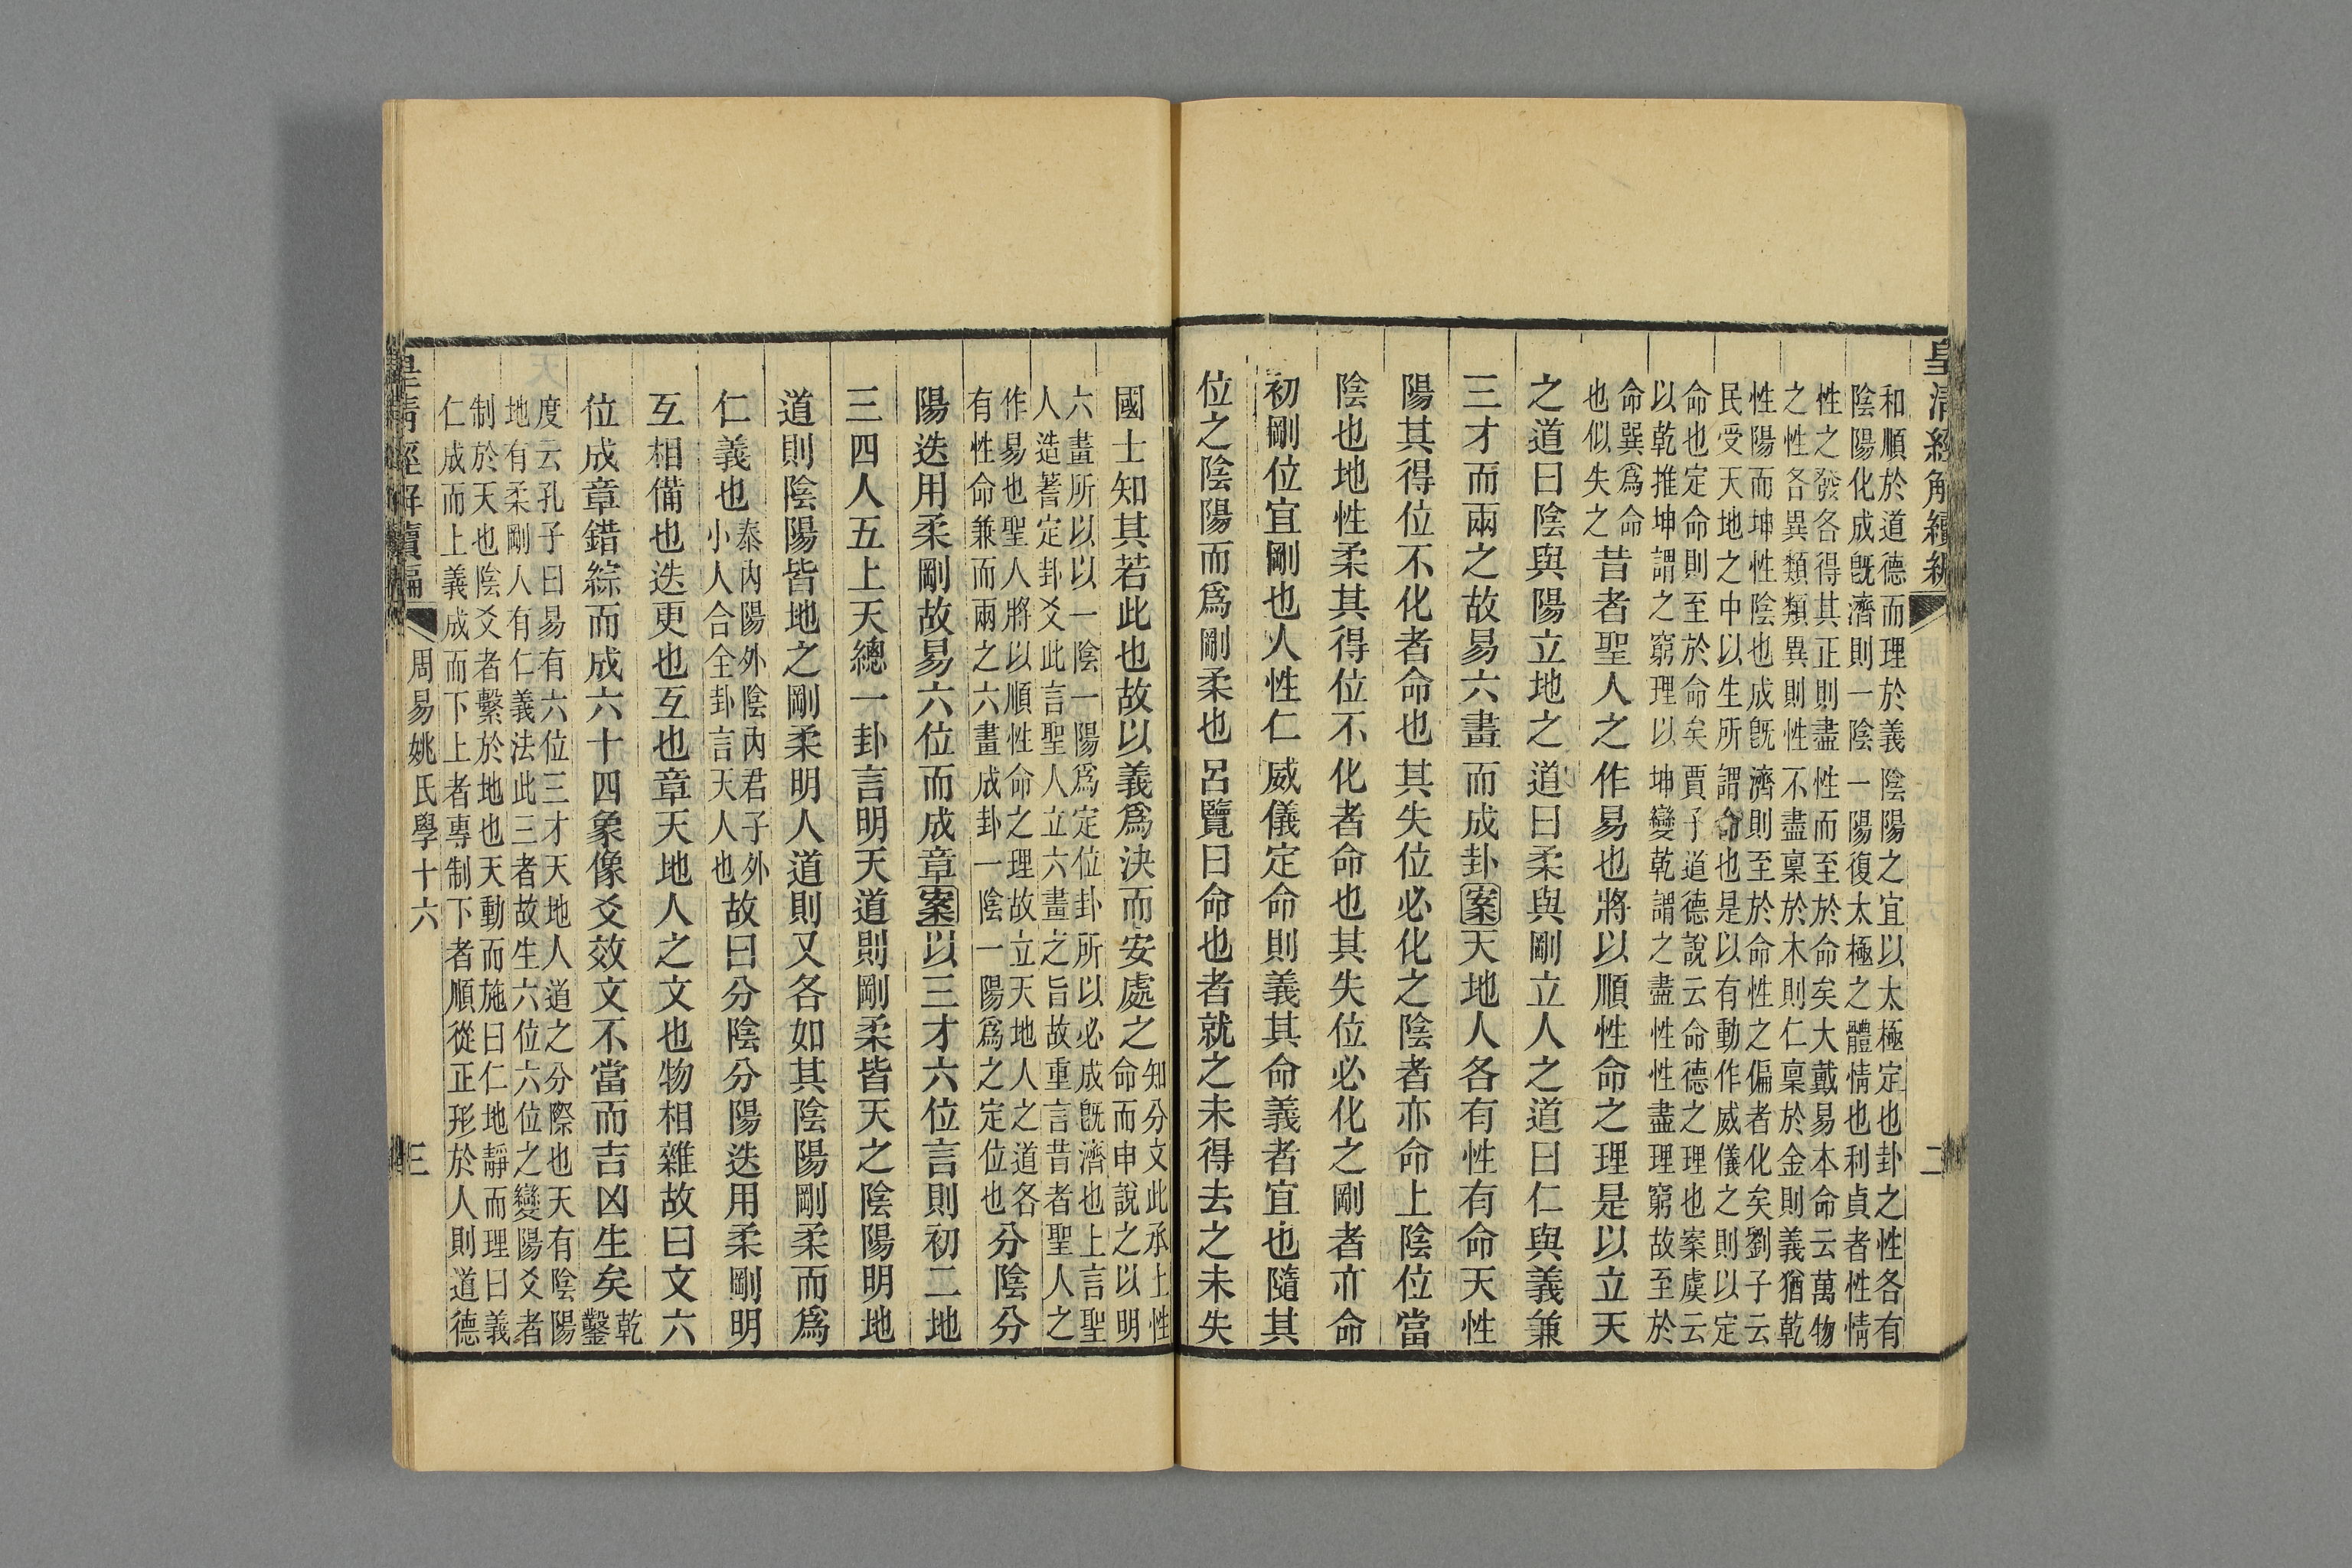 皇清經解續編
二
和順於道德而理於義陰陽之宜以太極定也卦之性各有
陰陽化成既濟則一陰一陽復太極之體情也利貞者性情
性之發各得其正則盡性而至於命矣大戴易本命云萬物
之性各異類類異則性不盡稟於木則仁稟於金則義猶乾
性陽而坤性陰也成既濟則至於命性之偏者化矣劉子云
民受天地之中以生所謂命也是以有動作威儀之則以定
命也定命則至於命矣賈子道德說云命德之理也案虞云
以乾推坤謂之窮理以坤變乾謂之盡性性盡理窮故至於
命巽爲命
也似失之
昔者聖人之作易也將以順性命之理是以立天
之道曰陰與陽立地之道曰柔與剛立人之道曰仁與義兼
三才而兩之故易六畫而成卦案天地人各有性有命天性
陽其得位不化者命也其失位必化之陰者亦命上陰位當
陰也地性柔其得位不化者命也其失位必化之剛者亦命
初剛位宜剛也人性仁威儀定命則義其命義者宜也隨其
位之陰陽而爲剛柔也呂覽曰命也者就之未得去之未失
國士知其若此也故以義爲決而安處之
知分文此承上性
命而申說之以明
六畫所以以一陰一陽爲定位卦所以必成既濟也上言聖
人造蓍定卦爻此言聖人立六畫之旨故重言昔者聖人之
作易也聖人將以順性命之理故立天地人之道各
有性命兼而兩之六畫成卦一陰一陽爲之定位也
分陰分
陽迭用柔剛故易六位而成章案以三才六位言則初二地
三四人五上天總一卦言明天道則剛柔皆天之陰陽明地
道則陰陽皆地之剛柔明人道則又各如其陰陽剛柔而爲
仁義也
泰內陽外陰內君子外
小人合全卦言天人也
故曰分陰分陽迭用柔剛明
互相備也迭更也互也章天地人之文也物相雜故曰文六
位成章錯綜而成六十四象像爻效文不當而吉凶生矣
乾
鑿
度云孔子曰易有六位三才天地人道之分際也天有陰陽
地有柔剛人有仁義法此三者故生六位六位之變陽爻者
制於天也陰爻者繫於地也天動而施曰仁地靜而理曰義
仁成而上義成而下上者專制下者順從正形於人則道德
皇清經解續編
周易姚氏學十六
三